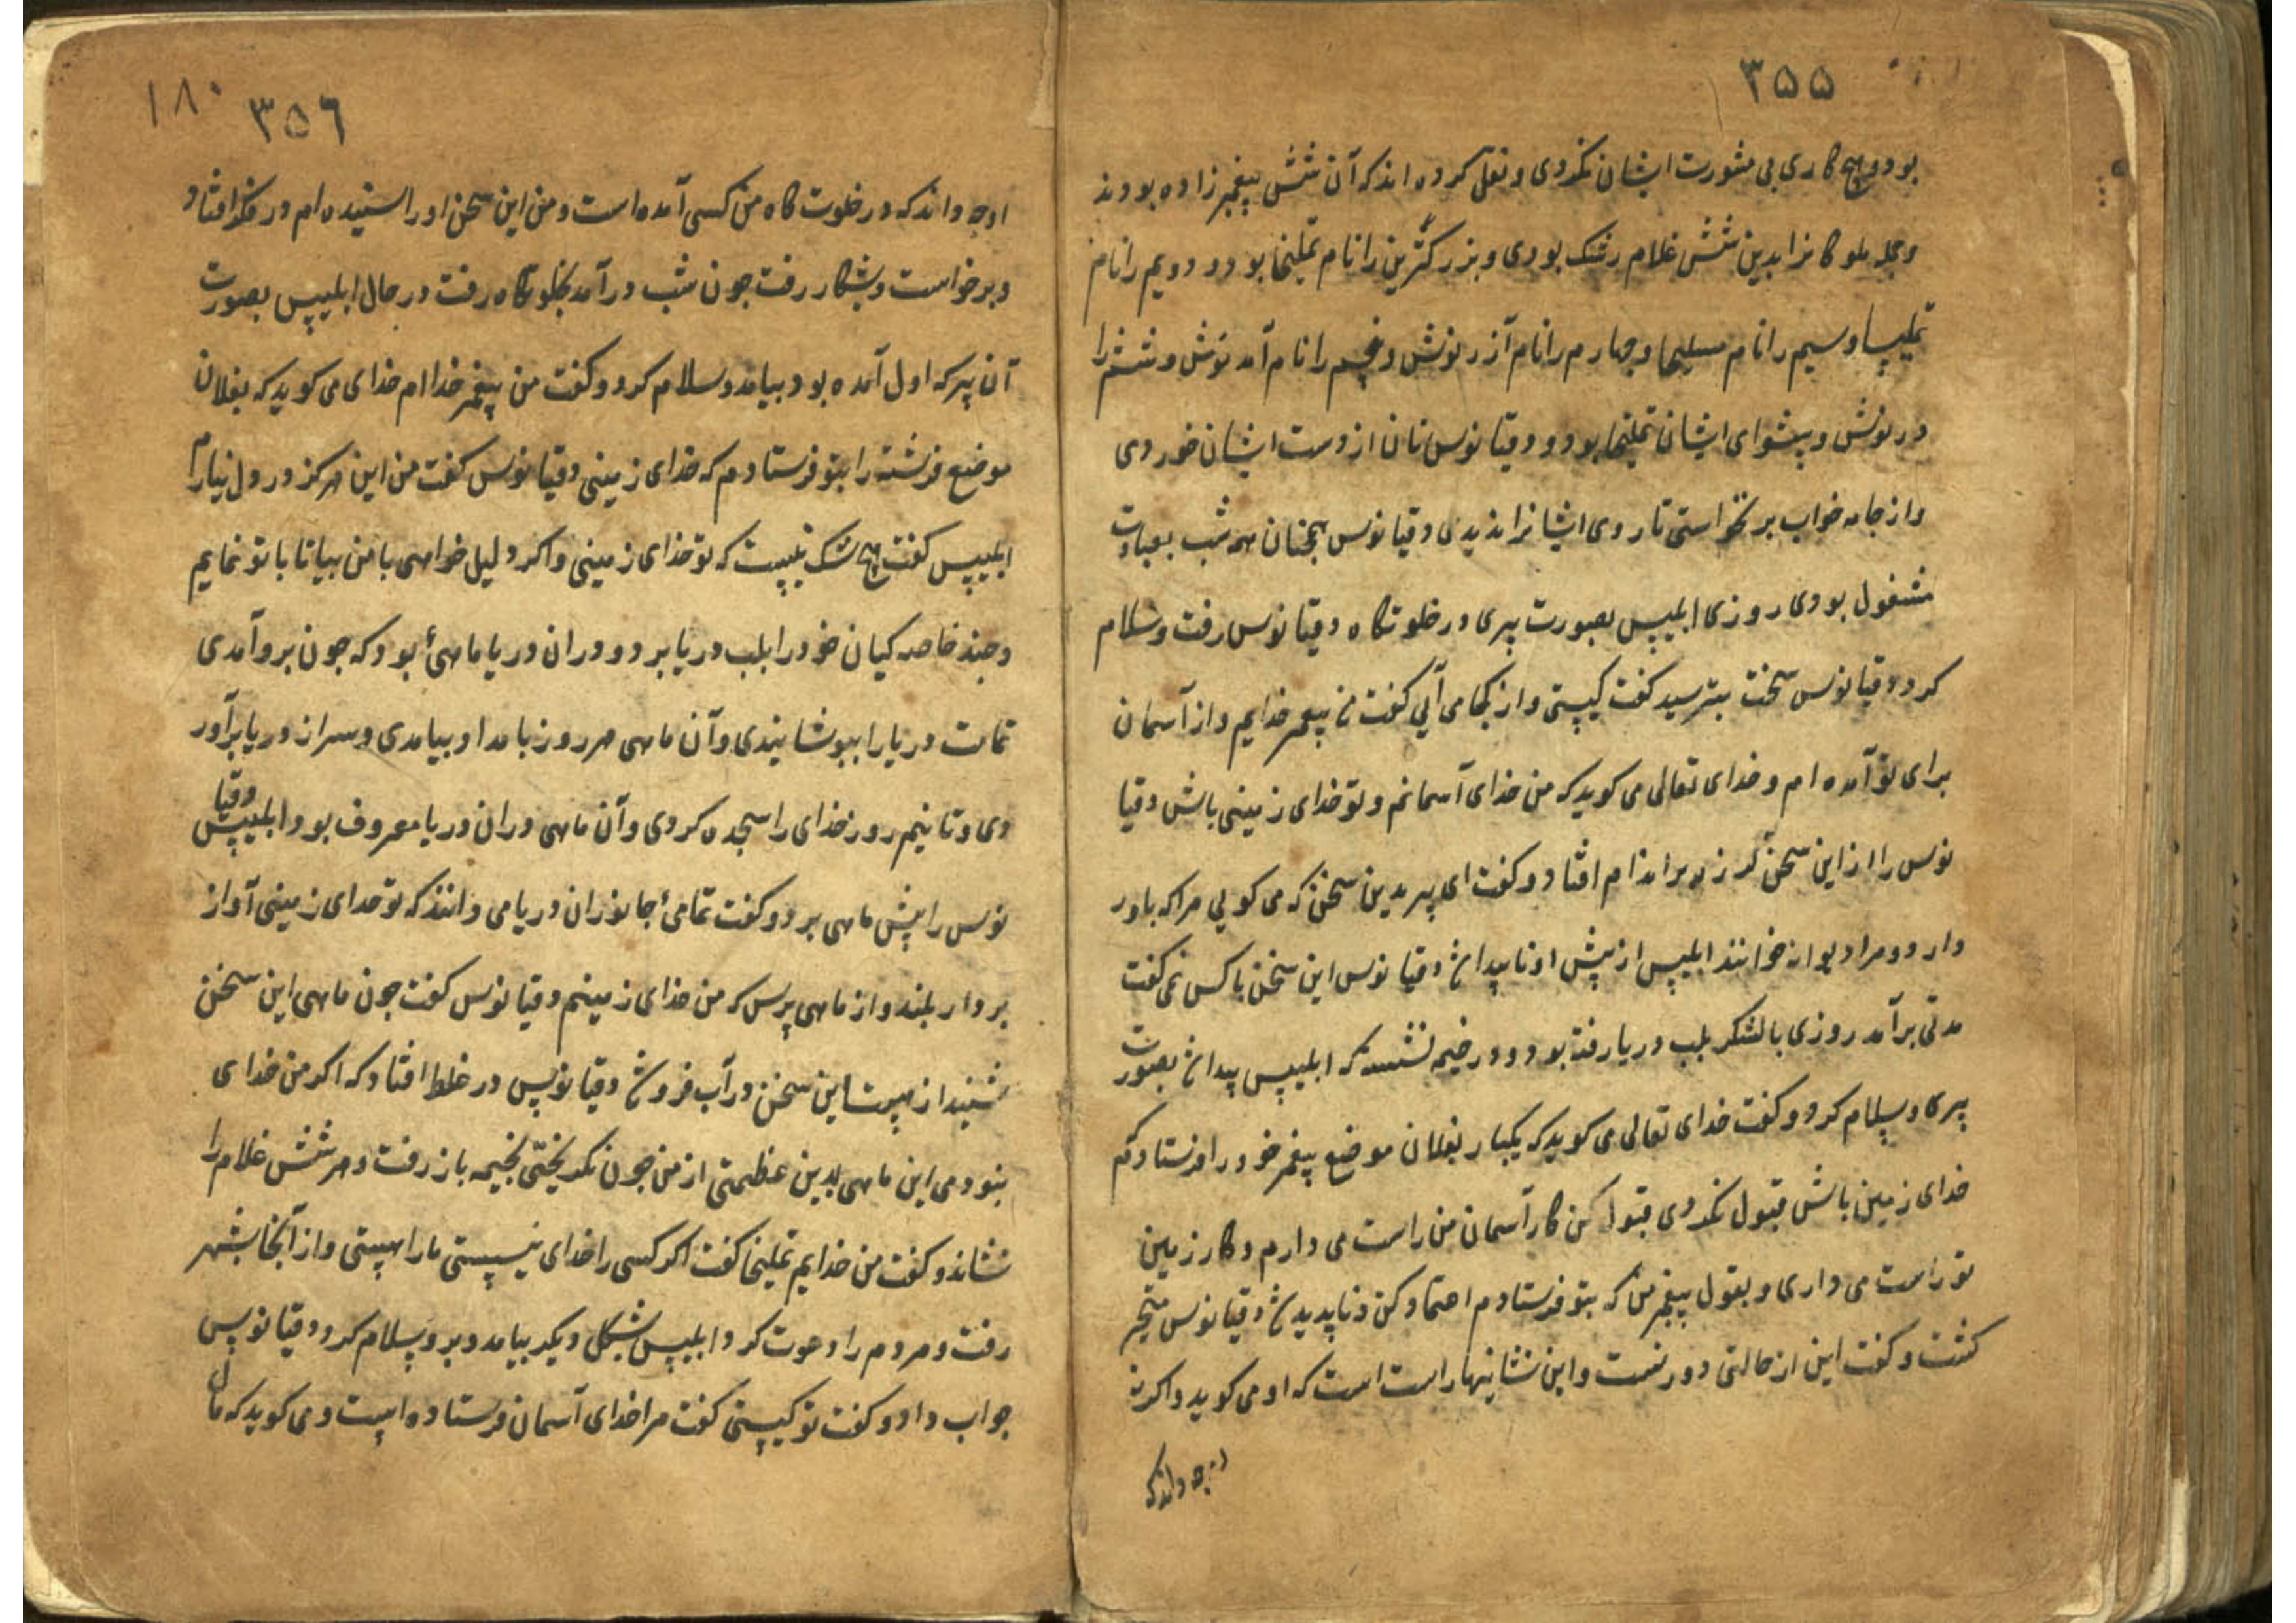 ۳۵۵
بود و هیچ کاری بی مشورت ایشان نکردی و نقل کرده اند که آن شش پیغمبر زاده بودند
و جمله ملوکانرا بدین شش غلام رشک بودی و بزرگترین را نام تملیخا بود و دویم را نام
و سیم را نام و چهارم را نام آزرنوش و پنجم را نام آمد نوش و ششم را
درنوش و پیشوای ایشان تملیخا بود و دقیانوس نان از دست ایشان خوردی
و از جامه خواب بر نخواستی تا روی ایشانرا ندیدی دقیانوس همچنان همه شب بعبادت
مشغول بودی روزی ابلیس بصورت پیری در خلوتکاه دقیانوس رفت و سلام
کرد دقیانوس سخت بترسید کفت کیستی و از کجا می آئی کفت من پیغمبر خدایم و از آسمان
برای تو آمده ام و خدای تعالی می کوید که من خدای آسمانم و تو خدای زمینی باش دقیا
نوس را از این سخن لرزه بر اندام افتاد و کفت ای پیر بدین سخن که می کویی مرا که باور
دارد و مرا دیوانه خوانند ابلیس از پیش او ناپیدا شد دقیانوس این سخن با کس نمی کفت
مدتی برآمد روزی با لشکر بلب دریا رفته بود و در خیمه نشسته که ابلیس پیدا شد بصورت
پیری و سلام کرد و کفت خدای تعالی می کوید که یکبار بفلان موضع پیغمبر خود را فرستادم که
خدای زمین باش قبول نکردی قبول کن کار آسمان من راست می دارم و کار زمین
تو راست می داری و بقول پیغمبر من که بتو فرستادم اعتماد کن و ناپدید شد دقیانوس متحیر
کشت و کفت این از حالتی دور نیست و این نشانیها راست است که او می کوید و اکر نه
او چه داند که
۱۸۰
۳۵۶
او چه داند که در خلوت کاه من کسی آمده است و من این سخن او را شنیده ام در فکر افتاد
و برخواست و بشکار رفت چون شب در آمد بخلوتکاه رفت در حال ابلیس بصورت
آن پیر که اول آمده بود بیامد و سلام کرد و کفت من پیغمبر خدا ام خدای می کوید که بفلان
موضع فرشته را بتو فرستادم که خدای زمینی دقیانوس کفت من این هرکز در دل نیارم
ابلیس کفت هیچ شک نیست که تو خدای زمینی و اکر دلیل خواهی با من بیا تا با تو نمایم
و چند خاصه کیان خود را بلب دریا برد و در ان دریا ماهئ بود که چون بر آمدی
تمامت دریا را بپوشانیدی و آن ماهی هر روز بامداد بیامدی و سر از دریا برآور
دی و تا نیم روز خدای را سجده کردی و آن ماهی در ان دریا معروف بود ابلیس دقیا
نوس را پیش ماهی برد و کفت تمامئ جانوران دریا می دانند که تو خدای زمینی آواز
بردار بلند و از ماهی پرس که من خدای زمینم دقیانوس کفت چون ماهی این سخن
شنید از هیبت این سخن در آب فرو شد دقیانوس در غلط افتاد که اکر من خدای
نبودمی این ماهی بدین عظمتی از من چون بکریختی بخیمه باز رفت و هر شش غلام را
نشاند و کفت من خدایم تملیخا کفت اکر کسی را خدای نیستی ما را هستی و از آنجا بشهر
رفت و مردم را دعوت کرد ابلیس بشکل دیکر بیامد و برو سلام کرد دقیانوس
جواب داد و کفت تو کیستی کفت مرا خدای آسمان فرستاده است و می کوید که مال